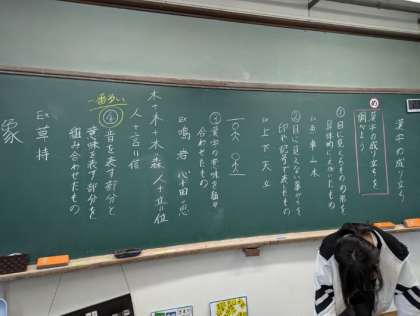 漢字の成り立ち
め
漢字の成り立ちを
調べよう
①目に見えるものの形を
具体的にえがいたもの
Ex 車 山 木
②目に見えない事がらを
印や記号で表したもの
Ex 上 下 天 立
③漢字の意味を組み
合わせたもの
Ex 鳴 岩 心+田=思
木+木+木 森 人+立=位
人+言=信
一番多い
④音を表す部分と
意味を表す部分を
組み合わせたもの
Ex 草 持
象